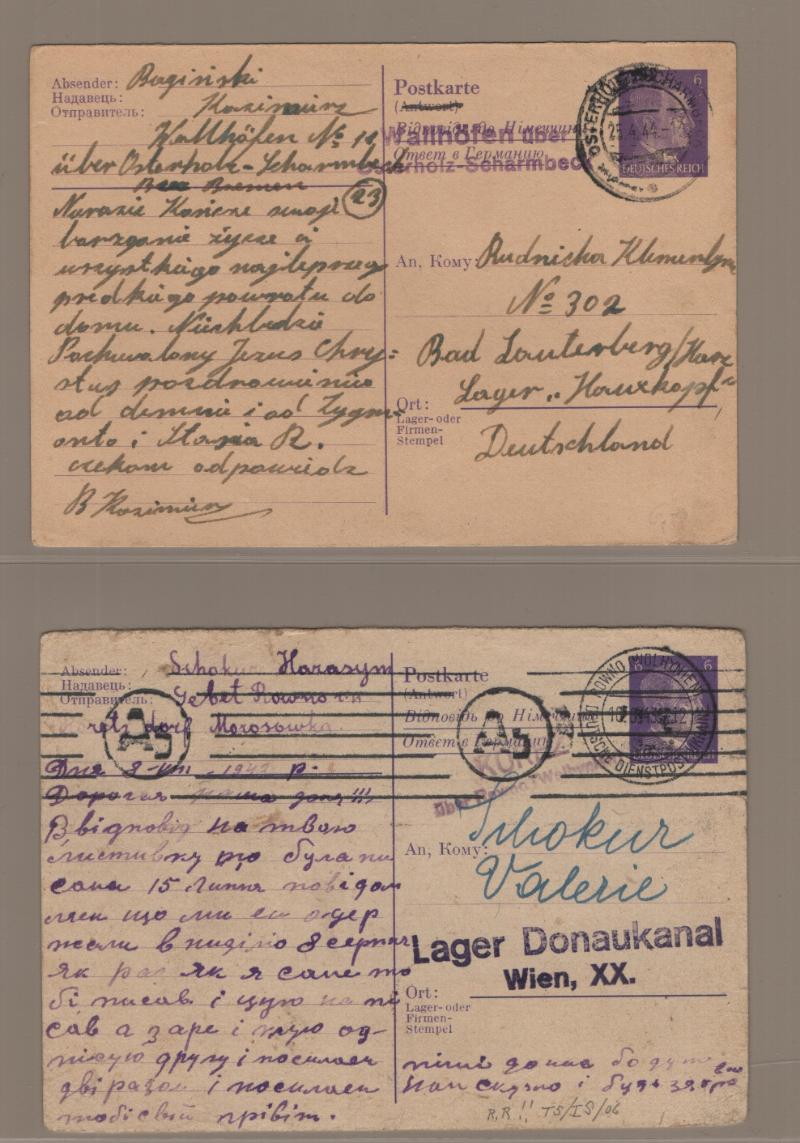 Absender: Bagiński
Надавець:
Отправитель: Kazimierz
Wallhöfen № 11
über Osterholz-Scharmbeck
Bremen
23
Narazie Kończe swoje
życze ci
wszystkiego najlepszego
prędkiego powrotu do
domu. Niechbedzie
Pochwalony Jezus Chry=
stus pozdrowienia
od demnie i od Zygm-
onta i Stasia R.
czekam odpowiedz
B Kazimierz
Postkarte
(Antwort)
Відповідь до Німеччини
Ответ в Германию
Wallhöfen über
Osterholz-Scharmbeck
OSTERHOLZ-SCHARMBECK
25.4.44
6
DEUTSCHES REICH
An, Кому: Rudnicka Klementyna
№ 302
Bad Lauterberg/Harz
Lager „Hauxkopf“
Ort:
Lager- oder
Firmen-
Stempel
Deutschland
Absender: Schokur Harasym
Надавець:
Отправитель: Gebet Rowno
dorf Morosowka
Дня 8-VIII-1943 р.
Дорогая наша доня!!!
В відповідь на твою
листивку що була пи
сана 15 Липня повідом
ляєм що ми єї одер
жали в неділю 8 серпня
як раз як я саме то
бі писав і цую напи
сав а заре і тую од-
писую другу і посилаєм
дві разом і посилаєм
тобі свій привіт.
Postkarte
(Antwort)
Відповідь до Німеччини
Ответ в Германию
A5
A5
über Rowno (Wolhynien)
ROWNO (WOLHYNIEN)
DEUTSCHE DIENSTPOST UKRAINE
6
An, Кому: Schokur
Valerie
Lager Donaukanal
Wien, XX.
Ort:
Lager- oder
Firmen-
Stempel
нам скучно і
R.R!! TS/IS/06